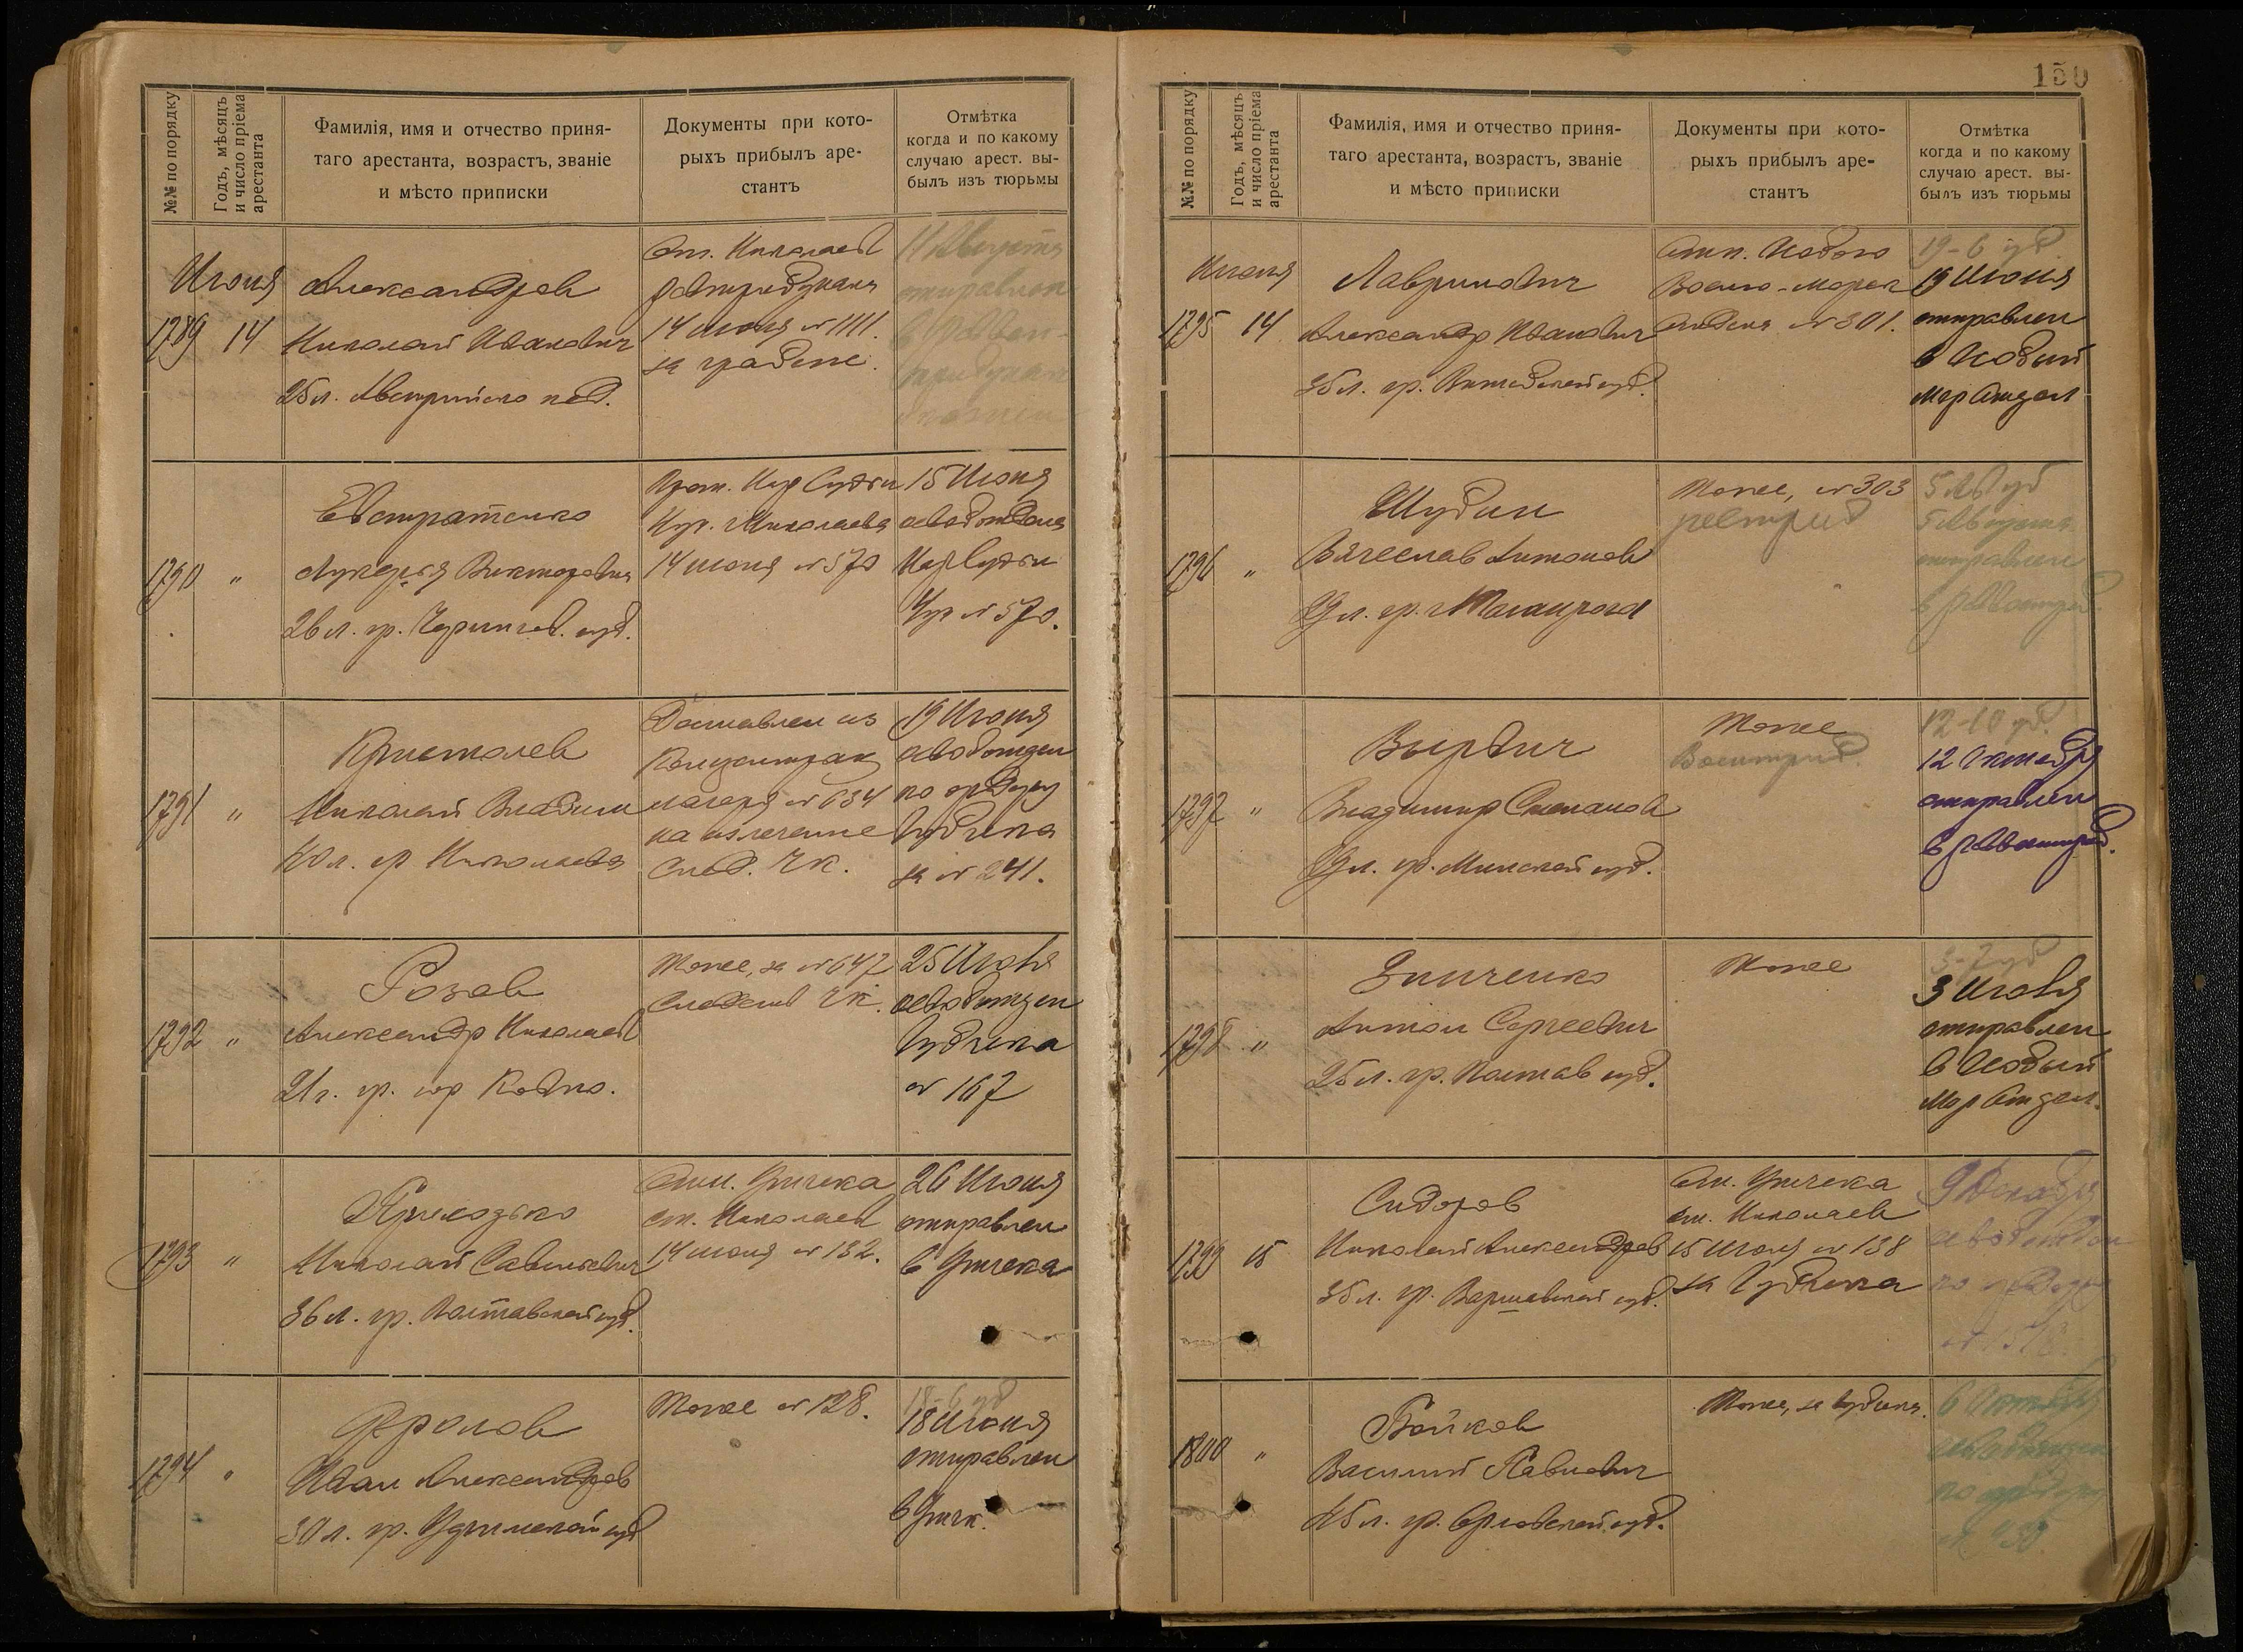 №№ по порядку
Годъ, мѣсяцъ
и число пріема
арестанта
Фамилія, имя и отчество приня-
таго арестанта, возрастъ, званіе
и мѣсто приписки
Документы при кото-
рыхъ прибылъ аре-
стантъ
Отмѣтка
когда и по какому
случаю арест. вы-
былъ изъ тюрьмы
Июня
1789 14
Александров
Николай Иванович
25 л. Австрийско под.
Отн. Николаев
Реввтрибунала
14 июня № 1111.
отправлен
1790 "
Евстратенко
Лукерья Викторовна
26 л. гр. Чернигов. губ.
Прот. Нар Судьи
Николаева
14 июня № 570
15 Июня
освобождена
Нар Судьи
№ 570.
1791 "
Кристалев
Николай Владим
40 л. гр Николаева
Доставлен из
Концентрац
лагеря № 634
на излечение
След. ЧК.
19 Июня
освобожден
по ордеру
Губчека
за № 241.
1792 "
Розов
Александр Николаев
21 г. гр. гор Ковно.
Тоже, за № 647
ЧК.
25 Июля
освобожден
Губчека
№ 167
1793 "
Приходько
Николай Савельевич
36 л. гр. Полтавской губ.
Отн. Учгчека
ст. Николаев
14 июня № 132.
26 Июня
отправлен
в Учгчека
1794 "
Фролов
Иван Александров
30 л. гр. губ
Тоже № 128.
18-6 уб
18 Июня
отправлен
150
№№ по порядку
Годъ, мѣсяцъ
и число пріема
арестанта
Фамилія, имя и отчество приня-
таго арестанта, возрастъ, званіе
и мѣсто приписки
Документы при кото-
рыхъ прибылъ аре-
стантъ
Отмѣтка
когда и по какому
случаю арест. вы-
былъ изъ тюрьмы
Июня
1795 14
Лавринович
Александр Иванович
35 л. гр. Витебской губ.
Отн. Особого
Военно-Морск
Отдела № 301.
19-6 уб
19 Июня
отправлен
в Особый
Мор Отдел
1796 "
Шубин
Вячеслав Антонов
гр. г Таганрога
Тоже, № 303
ревтриб
5 Августа
отправлен
в Реввоентриб.
1797 "
Вырвич
Владимир Степанов
гр. Минской губ.
Тоже
Военитриб.
12-10 уб.
12 Октября
отправлен
в Реввоентриб.
1798 "
Зинченко
Антон Сергеевич
25 л. гр. Полтав губ.
Тоже
3-7 уб
3 Июля
отправлен
в Особый
Мор Отдел.
1799 15
Сидоров
Николай Александров
35 л. гр. Варшавской губ.
Отн. Учгчека
ст. Николаев
15 Июня № 138
за Губчека
9 Декабря
освобожден
по ордеру
1800 "
Бойков
Василий Павлович
45 л. гр. Орловской губ.
Тоже, за Губчека.
6 Октября
освобожден
по ордеру